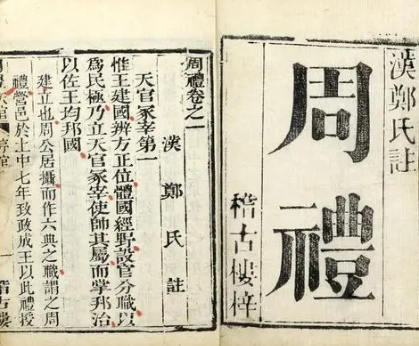 漢鄭氏註
周禮
稽古樓梓
周禮卷之一
漢鄭氏註
天官冢宰第一
惟王建國辨方正位體國經野設官分職以
爲民極乃立天官冢宰使帥其屬而掌邦治
以佐王均邦國
建立也周公居攝而作六典之職謂之周
禮營邑於土中七年致政成王以此禮授